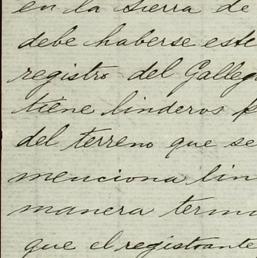 en la sierra de
debe haberse este
registro del Galleg
tiene linderos
del terreno que se
menciona lin
manera term
que el registrante